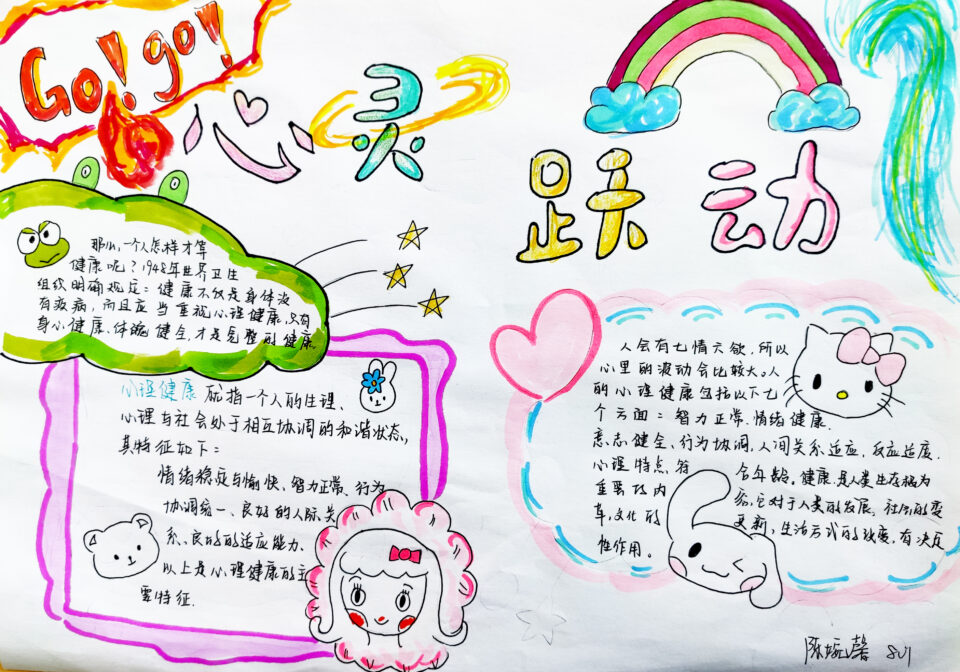 Go! go!
心灵
跃动
那么,一个人怎样才算
健康呢?1948年世界卫生
组织明确规定:健康不仅是身体没
有疾病,而且应当重视心理健康,只有
身心健康、体魄健全,才是完整的健康.
心理健康 就指一个人的生理、
心理与社会处于相互协调的和谐状态,
其特征如下:
情绪稳定与愉快、智力正常、行为
协调统一、良好的人际关
系、良好的适应能力、
以上是心理健康的主
要特征.
人会有七情六欲,所以
心里的波动会比较大。人
的心理健康包括以下七
个方面:智力正常.情绪健康.
意志健全、行为协调,人间关系适应,反应适度.
心理特点、符合年龄。健康是人类生存极为
重要的内容,它对于人类的发展,社会的变
革,文化的更新,生活方式的改变,有决定
性作用。
陈婉馨 801